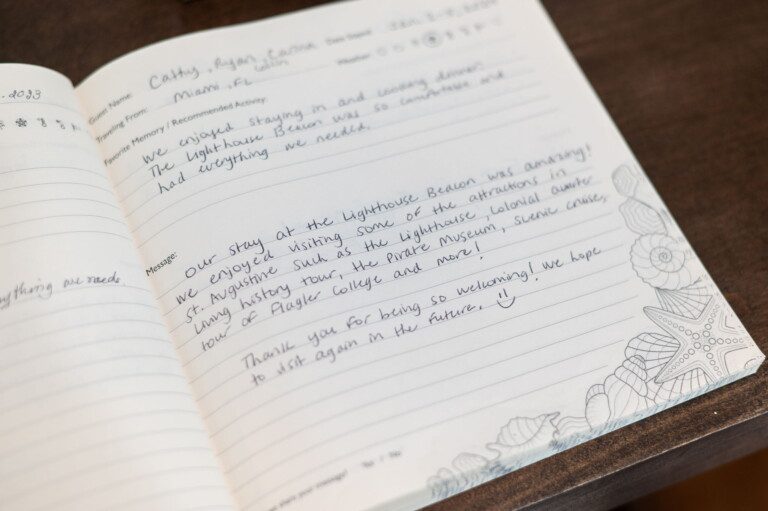 . 2023
Guest Name: Cathy, Ryan,
Traveling From: Miami, FL
Favorite Memory / Recommended Activity:
we enjoyed staying in and cooking dinner!
The Lighthouse Beacon was so comfortable and
had everything we needed.
Message:
our stay at the Lighthouse Beacon was amazing!
we enjoyed visiting some of the attractions in
St. Augustine such as the Lighthouse, Colonial Quarter
Living history tour, the Pirate Museum, scenic cruise,
tour of Flagler College and more!
Thank you for being so welcoming! We hope
to visit again in the future.
your message? Yes / No